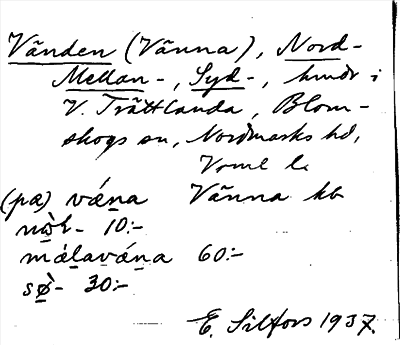 Vänden (Vänna), Nord-
Mellan-, Syd-, hmdr i
V. Trättlanda, Blom-
skogs sn, Nordmarks hd,
Värml l.
(pæ) vǽna Vänna kb
nòḷ- 10:-
mȧlavǽna 60:-
sø̀- 30:-
E. Silfors 1937.